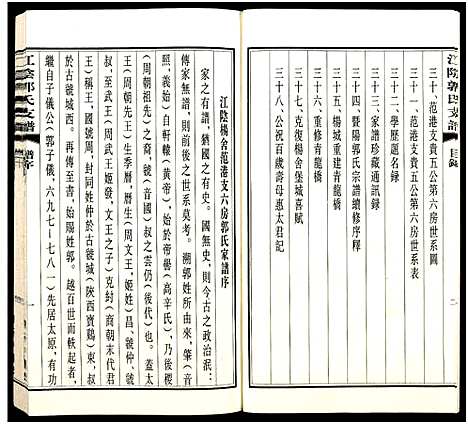 江陰郭氏支譜
目錄
三十、范港支貴五公第六房世系圖
三十一、范港支貴五公第六房世系表
三十二、學歷題名錄
三十三、家譜珍藏通訊錄
三十四、暨陽郭氏宗譜續修序釋
三十五、楊城重建青龍橋
三十六、重修青龍橋
三十七、恢復楊舍堡城喜賦
三十八、公祝百歲壽母惠太君記
江陰楊舍范港支六房郭氏家譜序
家之有譜，猶國之有史。國無史，則今古之政治泯；
傳家無譜，則前後之世系莫考。溯郭姓所由來，肇（音
照，義始）自軒轅（黃帝），始於帝嚳（高辛氏），乃後稷
（周朝祖先）之裔，虢（音國）叔之雲仍（後代）也。蓋太
王（周先王）生季曆，曆生（周文王，姬姓）昌、虢仲、虢
叔，武王（周武王姬發，文王之子）克紂（商朝末代君
王）稱王，國號周，封同姓仲於古虢城（陝西寶鷄）東，叔
於古虢城西。再傳至書，始賜姓郭。越百世而候起勳
繼自子儀公（郭子儀，六九七—七八一）先居太原，有功
江陰郭氏支譜
譜序